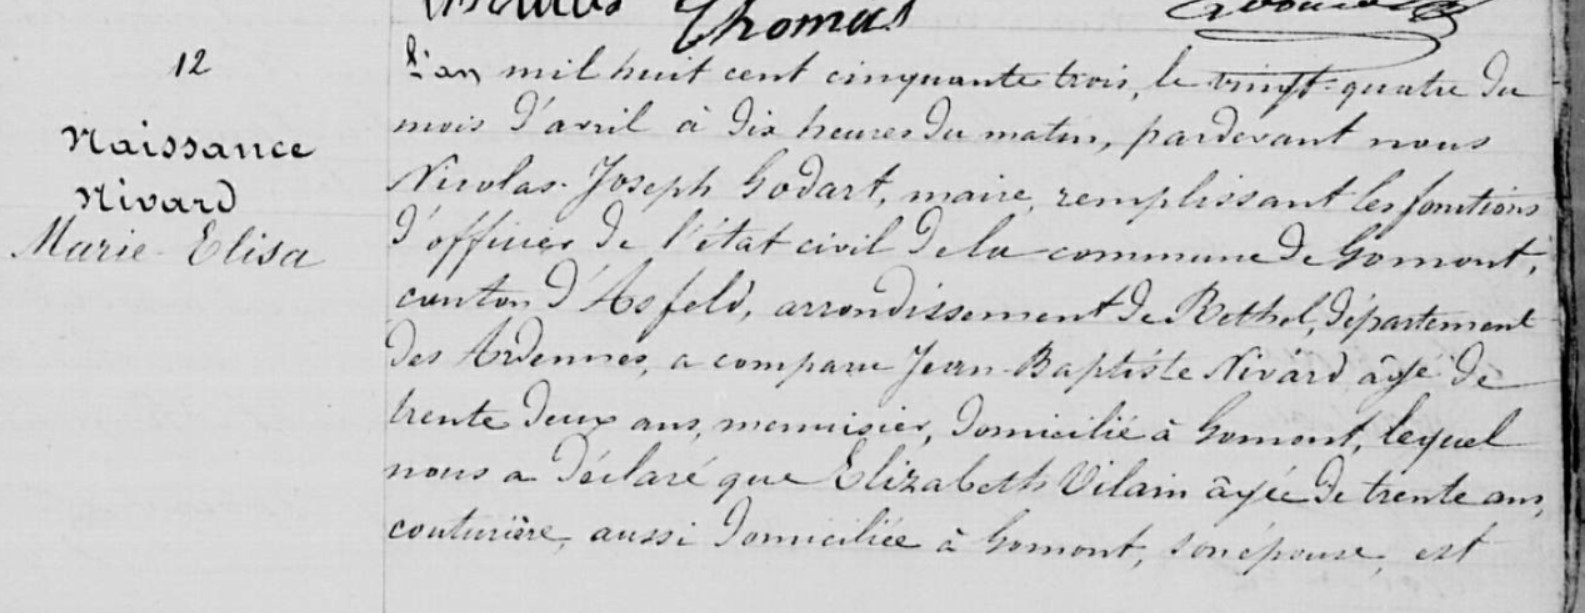 Thomas
12
Naissance
Nivard
Marie-Elisa
L'an mil huit cent cinquante trois, le vingt-quatre du
mois d'avril à dix heures du matin, pardevant nous
Nicolas-Joseph Godart, maire, remplissant les fonctions
d'officier de l'état civil de la commune de Gomont,
canton d'Asfeld, arrondissement de Rethel, département
des Ardennes, a comparu Jean-Baptiste Nivard âgé de
trente deux ans, menuisier, domicilié à Gomont, lequel
nous a déclaré que Elizabeth Vilain âgée de trente ans,
couturière, aussi domiciliée à Gomont, son épouse, est